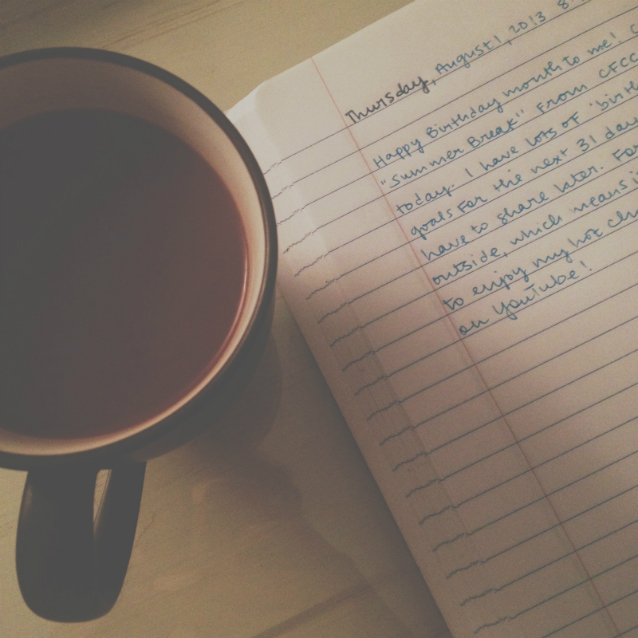 Thursday, August 1, 2013 8:
Happy Birthday month to me!
"Summer Break" from CFCC
today. I have lots of 'birth
goals for the next 31 day
have to share later. For
outside, which means i
to enjoy my hot ch
on YouTube!